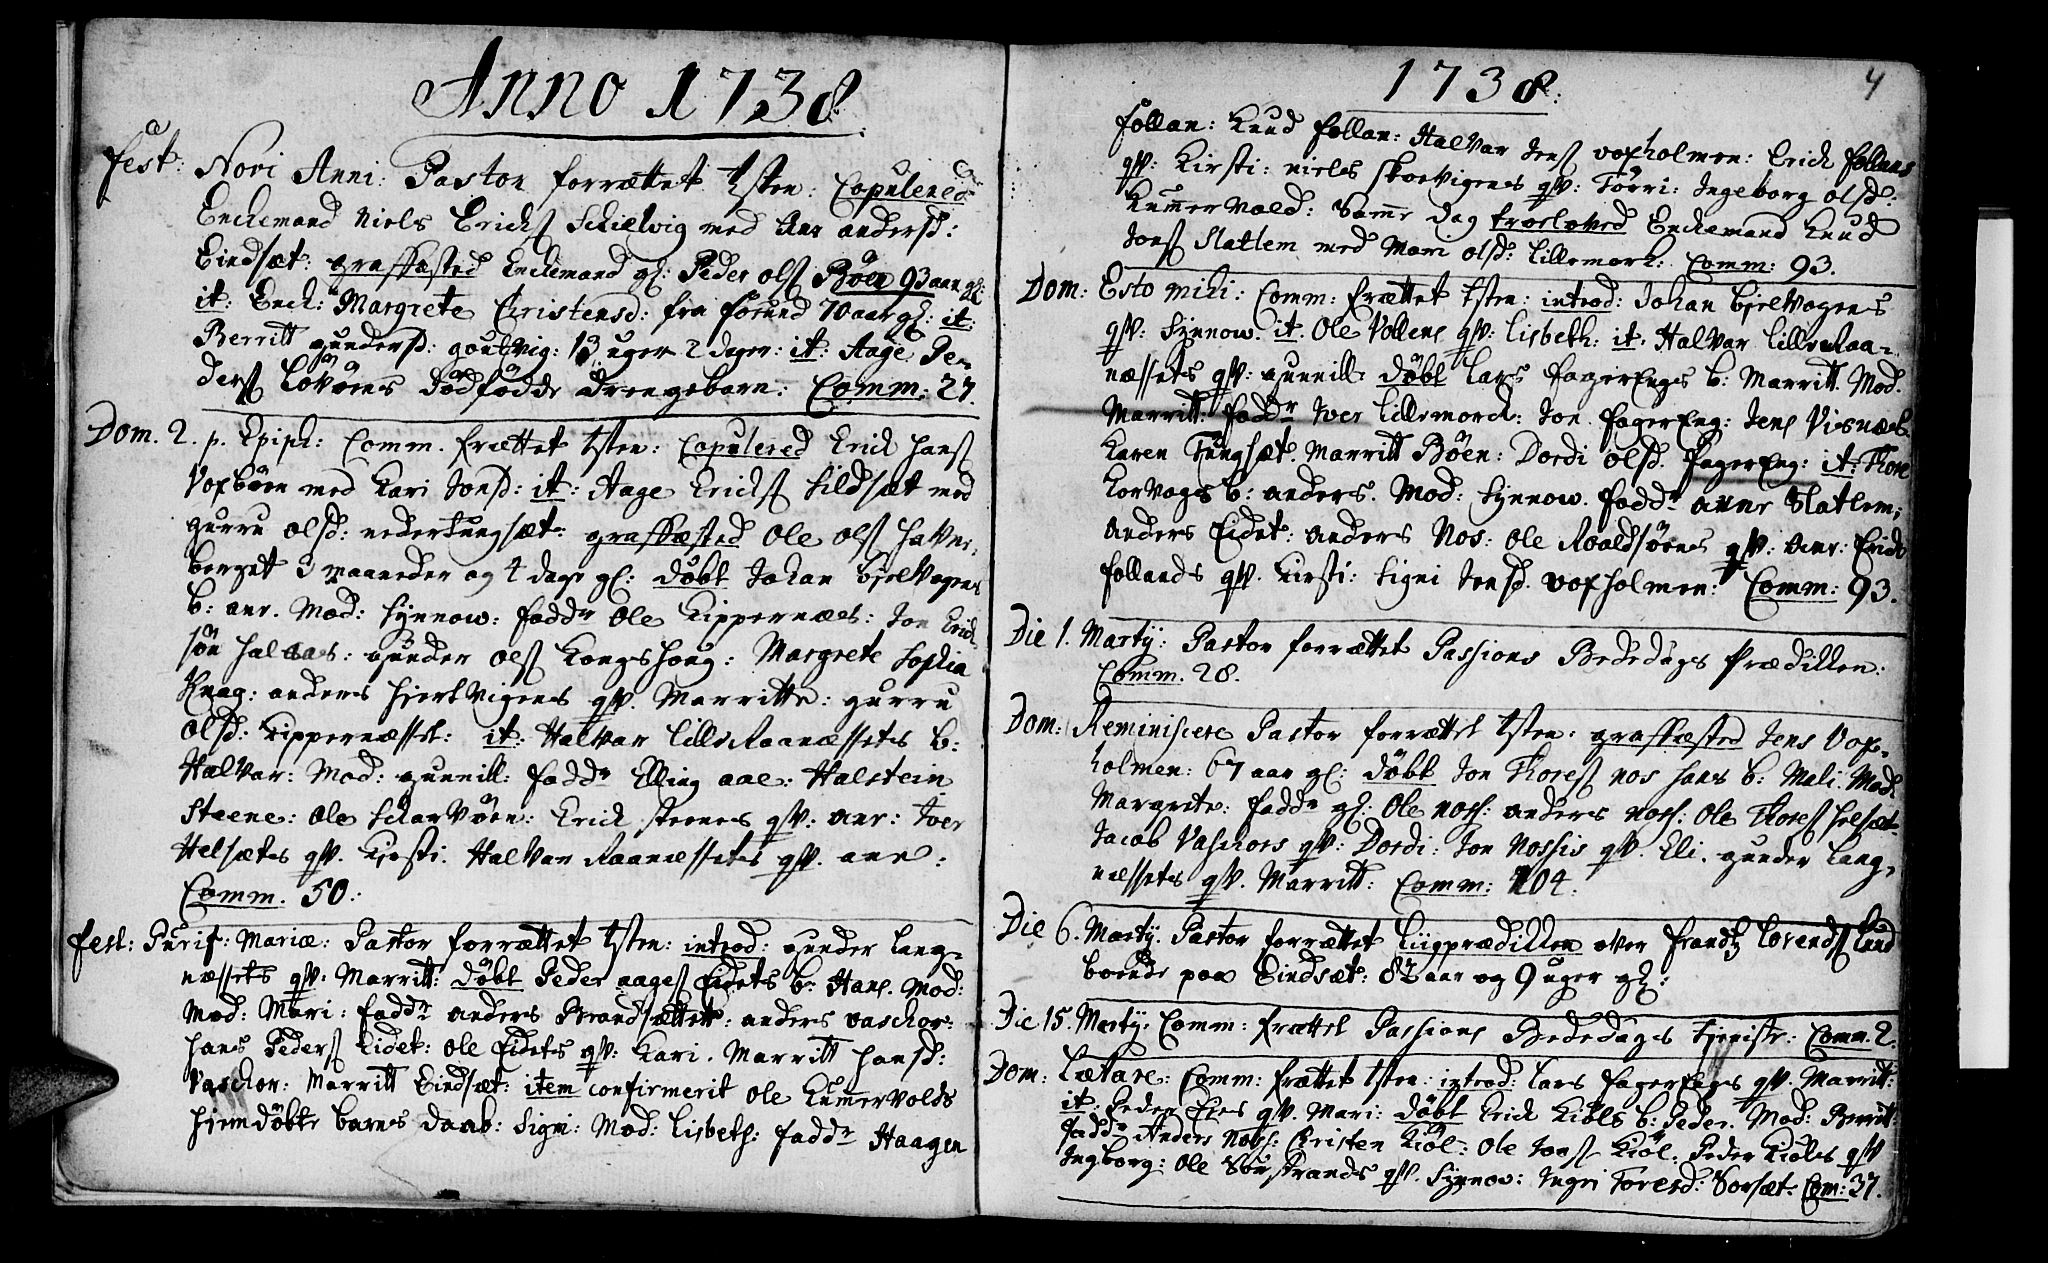 Anno 1738.
fest: Novi Anni: Pastor forrættet tsten: Copulered
Enckemand Niels Ericks Schielvig med Ane andersd:
Eindsæt: graffæsted Enckemand gl: Peder ols Böen 93 aar gl:
it: Enck: Margrete Christensd: fra forund 70 aar gl: it:
Berritt gundersd: goutvig: 13 uger 2 dager: it: Aage Pe-
ders Lovöens dödfödde drengebarn: Comm: 27.
Dom. 2. p. Epiph: Comm. frættet tsten: Copulered Erick Hans
Voxböen med Kari Jonsd: it: Aage Ericks Sildsæt med
gurru olsd: nedertungsæt: graffæsted Ole ols Havne-
berget 3 maaneder og 4 dage gl: döbt Johan bielvagens
b: anr. Mod: Synnow: fadd^r Ole Kippernæs: Jon Erick
sön Halaas: gunder ols Kongshoug: Margrete Sophia
Knag: anders hiertvigens qv. Marritte: gurru
olsd: Kippernæsset: it: Halvar Lille Raanæssets b:
Halvar: Mod: gunnill: fadd^r Elling aae: Halstein
Steene: Ole Scharvöen: Erick Steenes qv: anr: Iver
Helsæts qv. Kirsti. Halvar Raanæssets qv. ane:
Comm. 50:
fest: Purif: Mariæ: Pastor forrættet tsten: introd: gunder Lang-
næssets qv: Marritt: döbt Peder aages Eidets b: Hans. Mod:
Mod: Mari: fadd^r anders Brandsættet: anders vaschor:
Hans Peders Eidet: Ole Eidets qv: Kari. Marritt Hansd:
Vaschor: Marritt Eindsæt: item confirmerit Ole Kummervolds
Hiemdöbte barns daab: Signi: Mod: Lisbeth: fadd^r Haagen
1738. 4
follan: Knud follan: Halvar Jens voxholmen: Erick follans
qv: Kirsti: niels Skorvigens qv: Törri: Ingeborg olsd:
Kummervold: Samme dag troeloved Enckemand Knud
Jons Slatlem med Mari olsd: Lillemork: Comm: 93.
Dom: Esto mihi: Comm: frættet tsten: introd: Johan bielvogens
qv: Synnow. it. Ole Vollens qv: Lisbeth: it. Halvar Lille Raa-
næssets qv: gunnill: döbt Lars fagerEngs b: Marritt. Mod:
Marritt: fadd^r Iver Lillemorck: Jon fagerEng: Jens Visnæs
Karen Tungsæt. Marritt Böen: Dordi olsd. fagerEng: it: Thore
Korvogs b: anders. Mod: Synnow. fadd^r anne Slatlem:
anders Eidet: anders Nos: Ole Roaldsöens qv: anr: Erick
follands qv. Kirsti: Signi Jensd. voxholmen: Comm: 93.
Die 1. Martij: Pastor forrættet Passions Bededags Prædicken:
Comm. 28.
Dom: Reminiscere Pastor forrættet tsten: graffæsted Jens Vox-
holmen: 67 aar gl: döbt Jon Thores nos Hans b: Mali: Mod:
Margrete: fadd^r gl: Ole noss: anders noss: Ole Thores Helsæt
Jacob Vaschors qv: Dordi: Jon Nossis qv. Eli. gunder Lang-
næssets qv. Marritt: Comm: 104.
Die 6. Martij. Pastor forrættet Liigprædicken over frandtz Lorends Lund
boende paa Eindsæt: 82 aar og 9 uger gl:
Die 15. Martij. Comm: frættet Passions Bededags tieniste: Comm. 2.
Dom: Lætare: Comm: frættet tsten: introd: Lars fagerEngs qv. Marritt:
it. Peder qv. Mari: döbt Erick Kiöls b: Peder. Mod: Berritt:
fadd^r Anders Noss: Christen Kiöl: Ole Jons Kiöl: Peder Kiöls qv
Ingborg: Ole Sörstrands qv. Synnov: Ingri Toresd: Sorsæt. Com: 37.